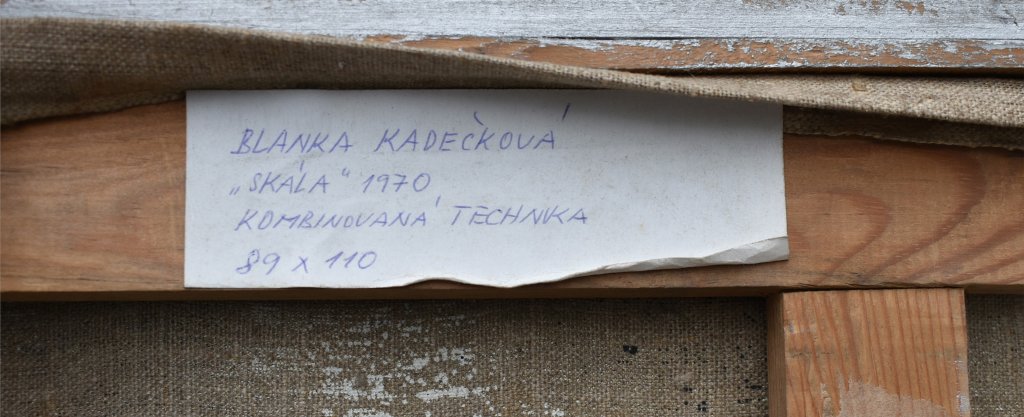 BLANKA KADEČKOVÁ
„SKÁLA“ 1970
KOMBINOVANÁ TECHNIKA
89 x 110